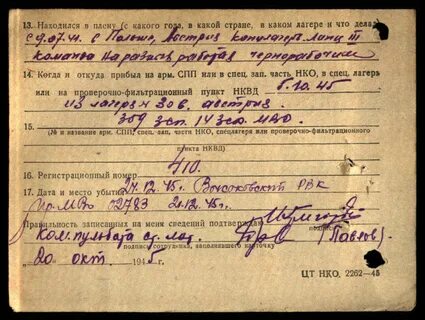 13. Находился в плену (с какого года, в какой стране, в каком лагере и что делал
с 9.07.41. в Польше, Австрия концлагерь Линц III
команда на разных работах чернорабочим
14. Когда и откуда прибыл на арм. СПП или в спец. зап. часть НКО, в спец. лагерь
или на проверочно-фильтрационный пункт НКВД 5.10.45
из лагеря н 300, австрия.
15. 359 зсп. 14 зсд. МВО.
(№ и название арм. СПП, спец. зап. части НКО, спецлагеря или проверочно-фильтрационного
пункта НКВД)
16. Регистрационный номер 410
17. Дата и место убытия 24.12.45г. Высоковский РВК
пр. МВО 02783 20.12.45г.
Правильность записанных на меня сведений подтверждаю
подпись
Ком. пульвзвода ст. лат. (Павлов)
подпись сотрудника, заполнявшего карточку
20 окт 1945г.
ЦТ НКО, 2262—45